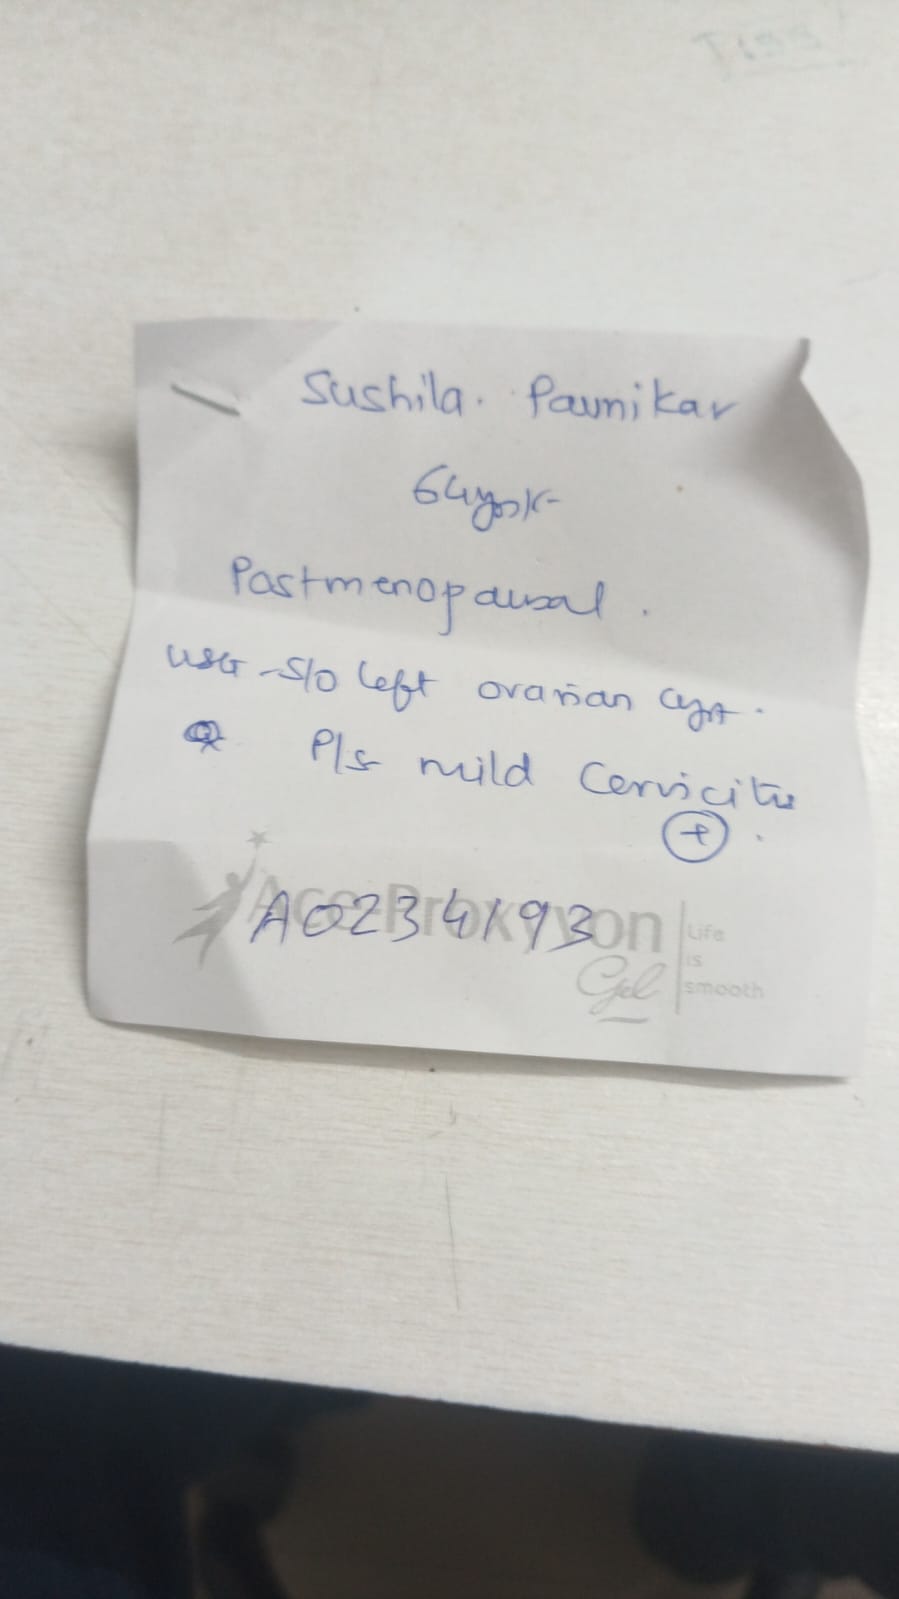 Sushila. Pawnikar
64yrs/F
Postmenopausal.
USG - S/O left ovarian cyst.
P/S mild Cervicitis
+
A0234193
AceProxyvon
Gel
Life
is
smooth